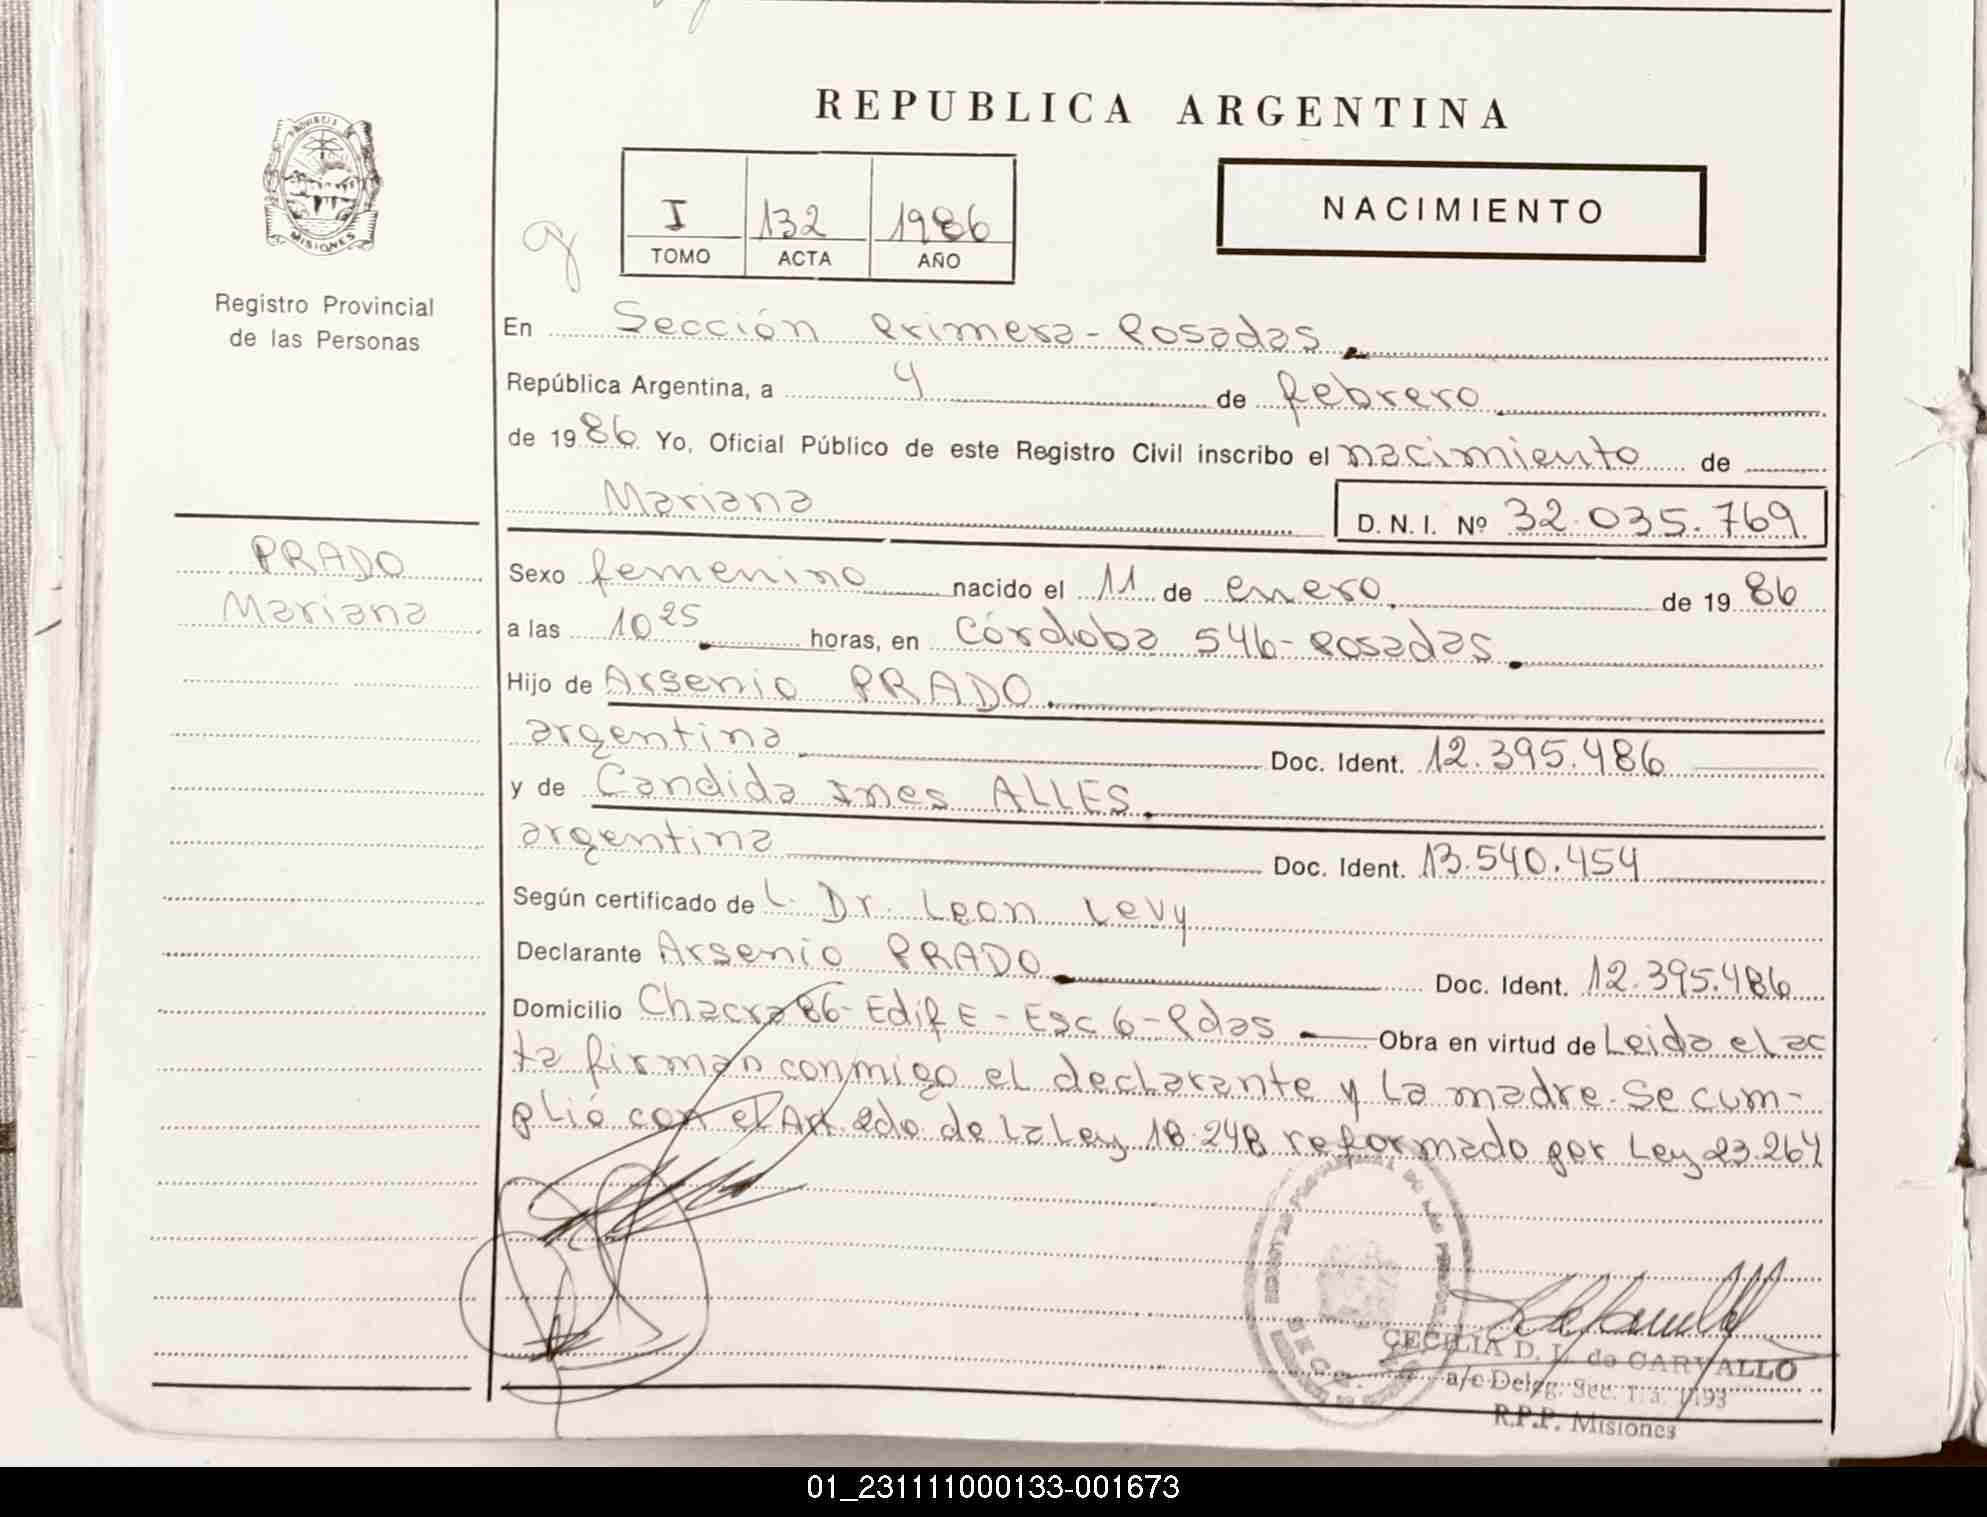 REPUBLICA ARGENTINA
PROVINCIA
MISIONES
Registro Provincial
de las Personas
I 132 1986
TOMO ACTA AÑO
NACIMIENTO
En Sección Primera - Posadas
República Argentina, a 4 de febrero
de 1986 Yo, Oficial Público de este Registro Civil inscribo el nacimiento de
Mariana D. N. I. Nº 32.035.769
PRADO
Mariana
Sexo femenino nacido el 11 de enero de 1986
a las 10 25 horas, en Córdoba 546 - Posadas
Hijo de Arsenio PRADO
argentina Doc. Ident. 12.395.486
y de Candida Ines ALLES
argentina Doc. Ident. 13.540.454
Según certificado de L. Dr. Leon Levy
Declarante Arsenio PRADO Doc. Ident. 12.395.486
Domicilio Chacra 86 - Edif E - Esc 6 - Pdas Obra en virtud de Leida el ac
ta firman conmigo el declarante y la madre. Se cum-
plió con el Art. 2do de la Ley 18.248 reformado por Ley 23.264
CECILIA D. L. de CARVALLO
a/c Deleg. Sec. 1ra. 1193
R.P.P. Misiones
01_231111000133-001673